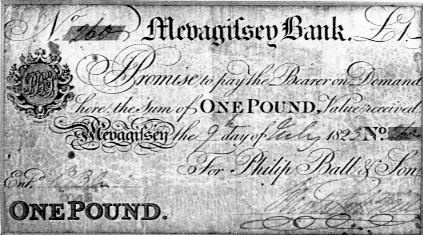 No. 260 Mevagissey Bank. £1
Promise to pay the Bearer on Demand
here, the Sum of ONE POUND, Value received.
Mevagissey the 9 day of July 1825 No.
For Philip Ball & Son
Entd.
ONE POUND.